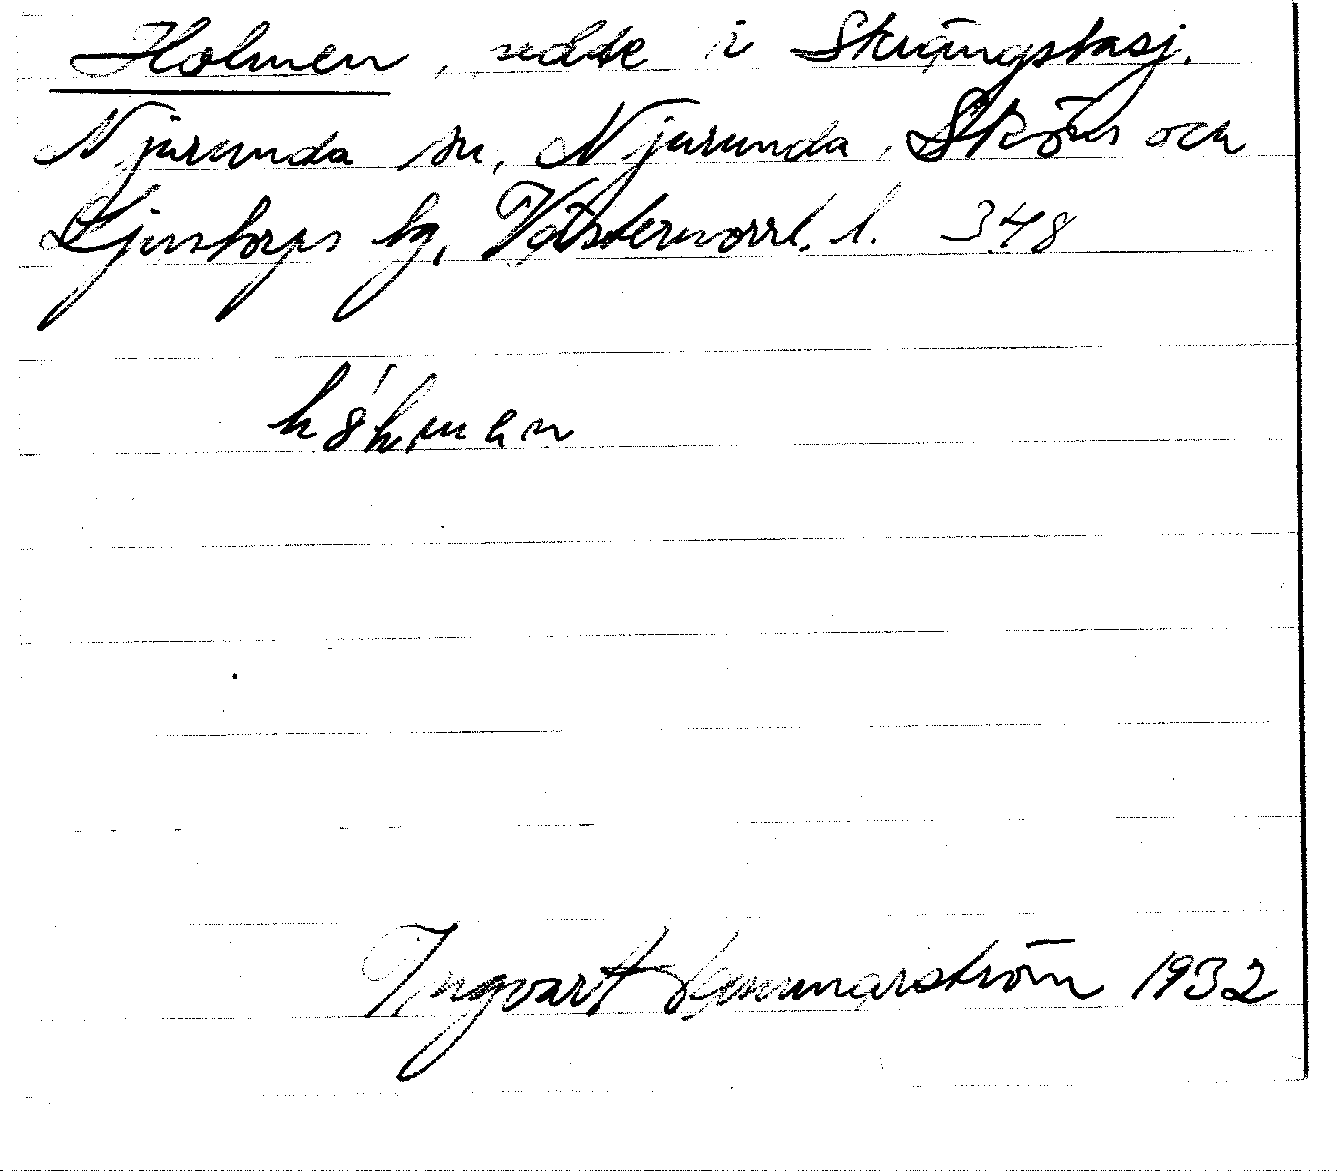 Holmen, udde i Skrängstasj.
Njurunda sn, Njurunda, Sköns och
Ljustorps tg, Västernorrl. l. 348
Ingvart Hammarström 1932